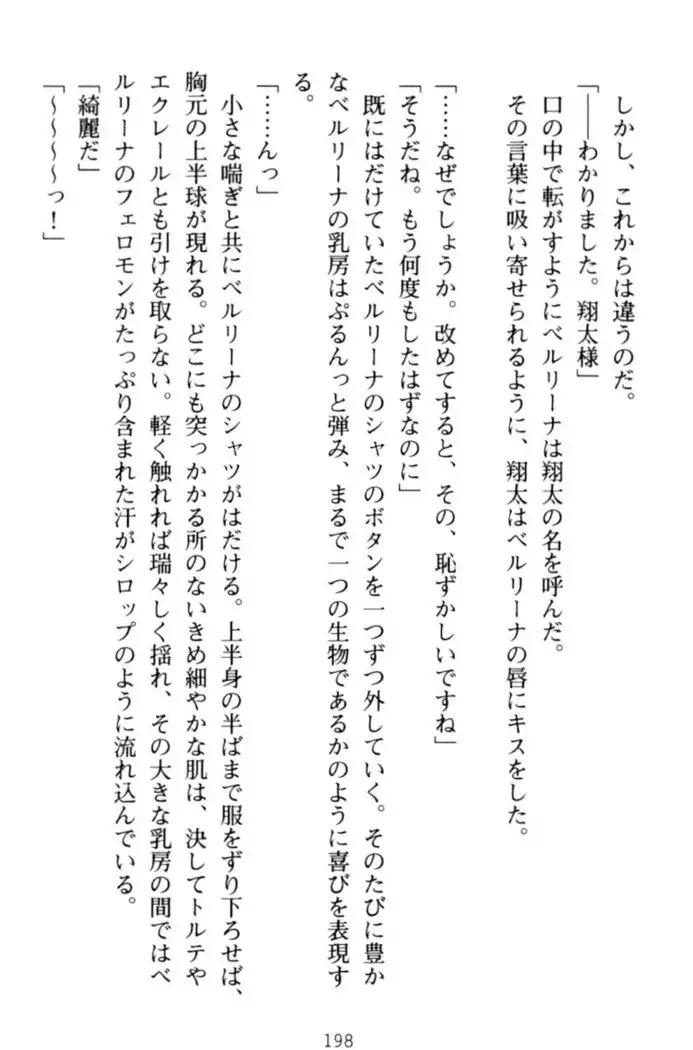 しかし、これからは違うのだ。
「――わかりました。翔太様」
口の中で転がすようにベルリーナは翔太の名を呼んだ。
その言葉に吸い寄せられるように、翔太はベルリーナの唇にキスをした。
「……なぜでしょうか。改めてすると、その、恥ずかしいですね」
「そうだね。もう何度もしたはずなのに」
既にはだけていたベルリーナのシャツのボタンを一つずつ外していく。そのたびに豊か
なベルリーナの乳房はぷるんっと弾み、まるで一つの生物であるかのように喜びを表現す
る。
「……んっ」
小さな喘ぎと共にベルリーナのシャツがはだける。上半身の半ばまで服をずり下ろせば、
胸元の上半球が現れる。どこにも突っかかる所のないきめ細やかな肌は、決してトルテや
エクレールとも引けを取らない。軽く触れれば瑞々しく揺れ、その大きな乳房の間ではベ
ルリーナのフェロモンがたっぷり含まれた汗がシロップのように流れ込んでいる。
「綺麗だ」
「～～～～っ！」
198